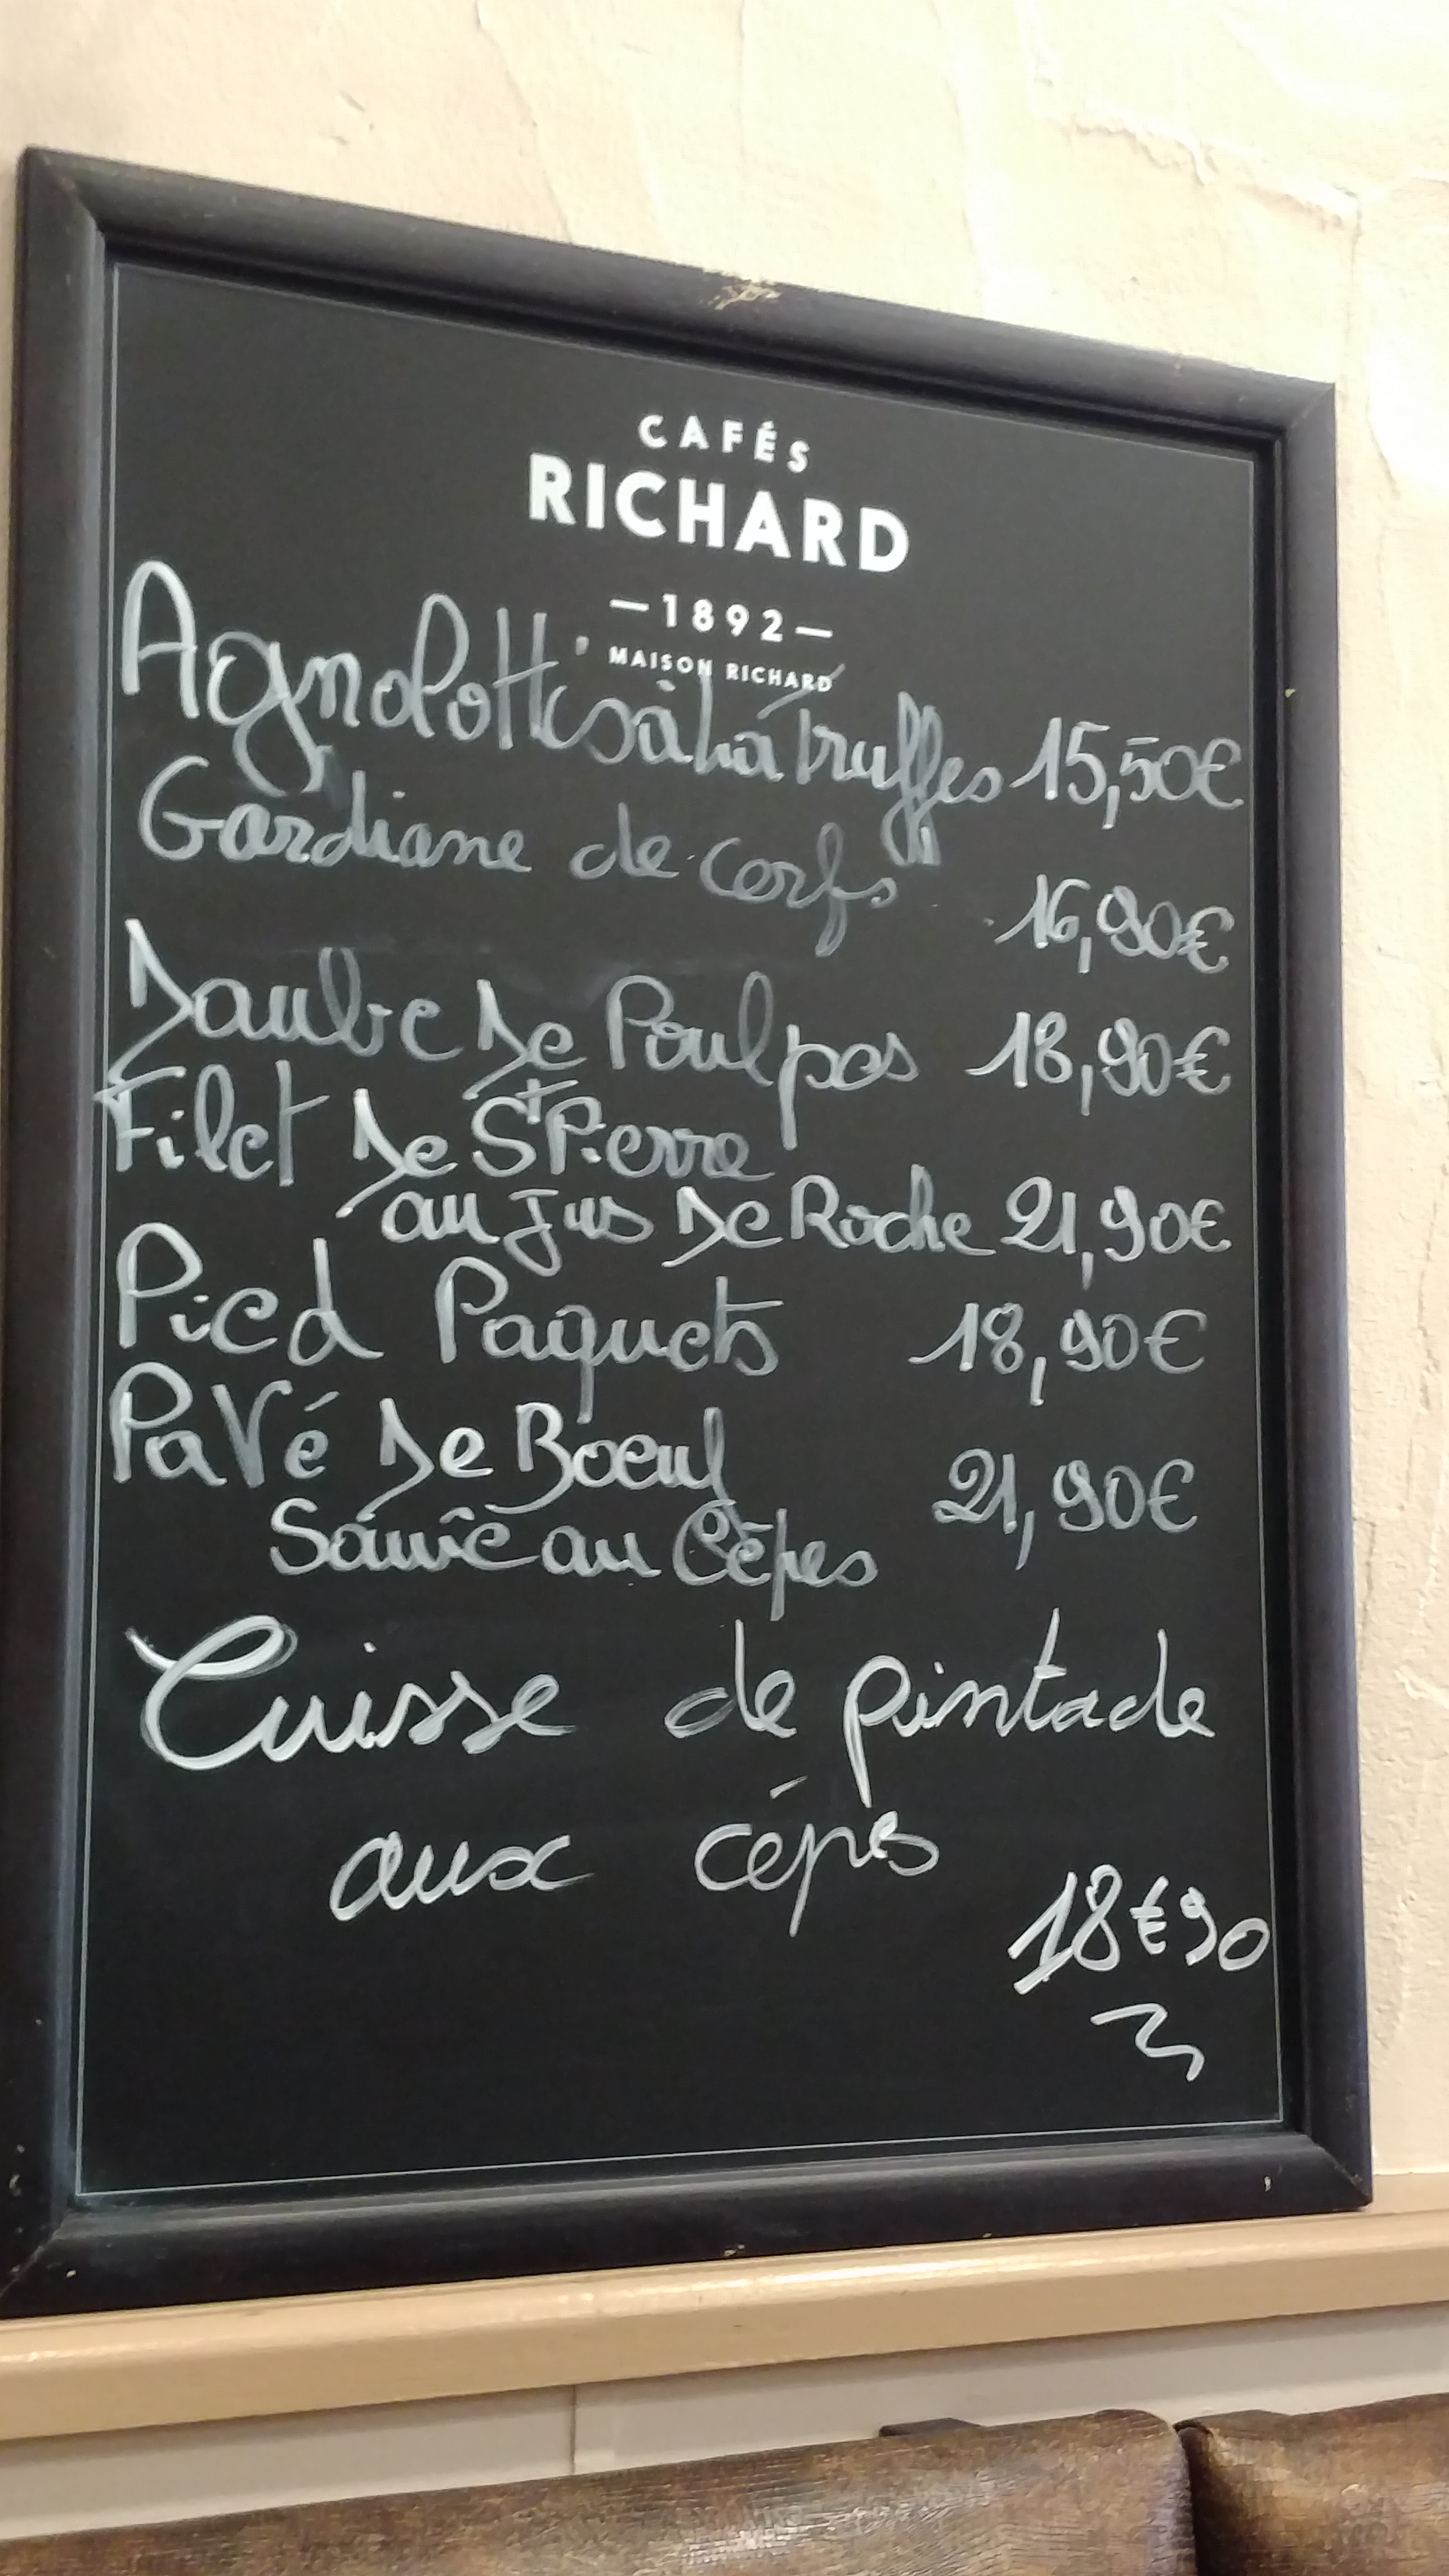 CAFÉS
RICHARD
—1892—
MAISON RICHARD
Agnolottis à la truffes 15,50€
Gardiane de cerfs 16,90€
Daube De Poulpes 18,90€
Filet De St Pierre
au Jus De Roche 21,90€
Pied Paquets 18,90€
Pavé De Boeuf 21,90€
Sauce au Cèpes
Cuisse de pintade
aux cépes
18€90